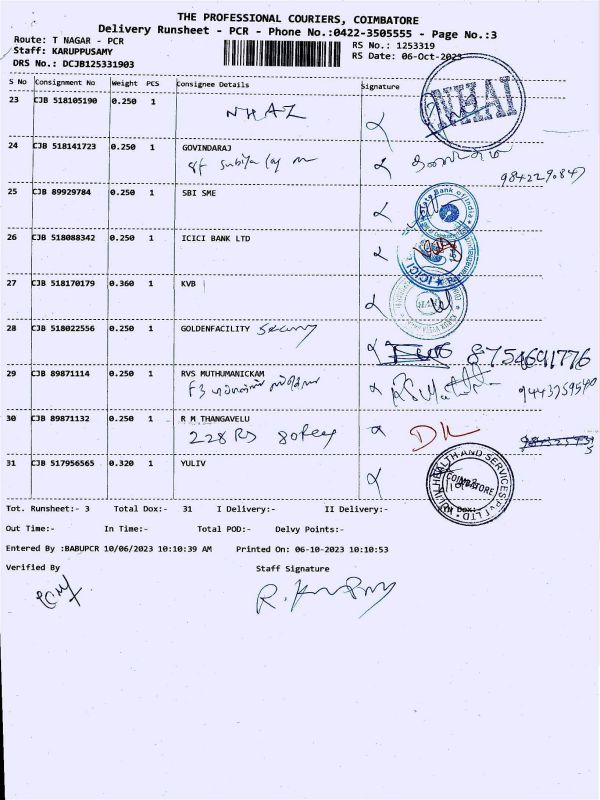 THE PROFESSIONAL COURIERS, COIMBATORE
Delivery Runsheet - PCR - Phone No.:0422-3505555 - Page No.:3
Route: T NAGAR - PCR
RS No.: 1253319
Staff: KARUPPUSAMY
RS Date: 06-Oct-2023
DRS No.: DCJB125331903
S No Consignment No Weight PCS Consignee Details Signature
23 CJB 518105190 0.250 1 NHAI
NHAI
24 CJB 518141723 0.250 1 GOVINDARAJ
9842290847
25 CJB 89929784 0.250 1 SBI SME
26 CJB 518088342 0.250 1 ICICI BANK LTD
ICICI
27 CJB 518170179 0.360 1 KVB
28 CJB 518022556 0.250 1 GOLDENFACILITY Security
8754691776
29 CJB 89871114 0.250 1 RVS MUTHUMANICKAM
F3
30 CJB 89871132 0.250 1 R M THANGAVELU
228 RS 80feet
31 CJB 517956565 0.320 1 YULIV
HEALTH AND SERVICES PVT LTD
COIMBATORE
Tot. Runsheet:- 3 Total Dox:- 31 I Delivery:- II Delivery:-
Out Time:- In Time:- Total POD:- Delvy Points:-
Entered By :BABUPCR 10/06/2023 10:10:39 AM Printed On: 06-10-2023 10:10:53
Verified By Staff Signature